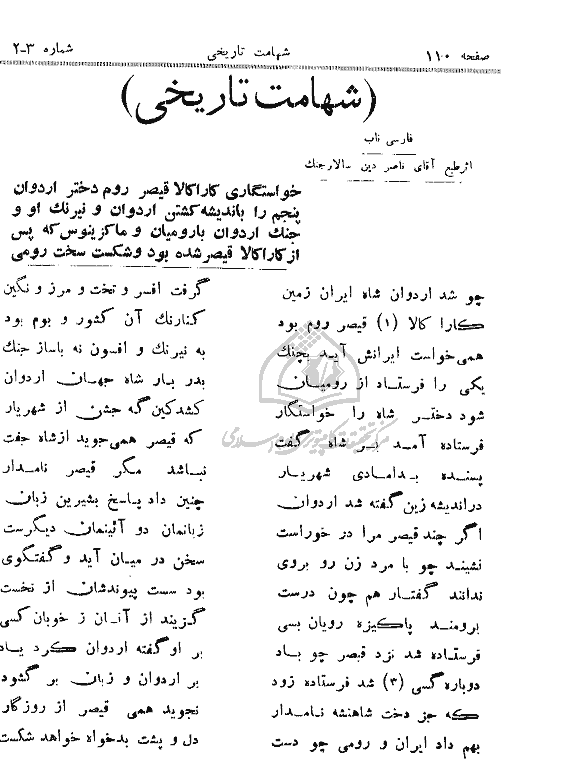 صفحه ۱۱۰ شهامت تاریخی شماره ۳-۲
(شهامت تاریخی)
فارسی ناب
اثر طبع آقای ناصر دین سالار جنک
خواستگاری کاراکالا قیصر روم دختر اردوان
پنجم را باندیشه کشتن اردوان و نیرنك او و
جنك اردوان بارومیان و ماکزینوس که پس
از کاراکالا قیصر شده بود و شکست سخت رومی
چو شد اردوان شاه ایران زمین گرفت افسر و تخت و مرز و نگین
کارا کالا (۱) قیصر روم بود کنارنك آن کشور و بوم بود
همی خواست ایرانش آید بچنك به نیرنك و افسون نه باساز جنك
یکی را فرستاد از رومیان بدر بار شاه جهان اردوان
شود دختر شاه را خواستگار کشد کین گه جشن از شهریار
فرستاده آمد بر شاه گفت که قیصر همی جوید از شاه جفت
پسنده بدامادی شهریار نباشد مگر قیصر نامدار
در اندیشه زین گفته شد اردوان چنین داد پاسخ بشیرین زبان
اگر چند قیصر مرا در خوراست زبانمان دو آئینمان دیگرست
نشیند چو با مرد زن رو بروی سخن در میان آید و گفتگوی
ندانند گفتار هم چون درست بود سست پیوندشان از نخست
برومند پاکیزه رویان بسی گزیند از آنان ز خوبان کسی
فرستاده شد نزد قیصر چو باد بر او گفته اردوان کرد یاد
دوباره گسی (۳) شد فرستاده زود بر اردوان و زبان بر گشود
که جز دخت شاهنشه نامدار نجوید همی قیصر از روزگار
بهم داد ایران و رومی چو دست دل و پشت بدخواه خواهد شکست